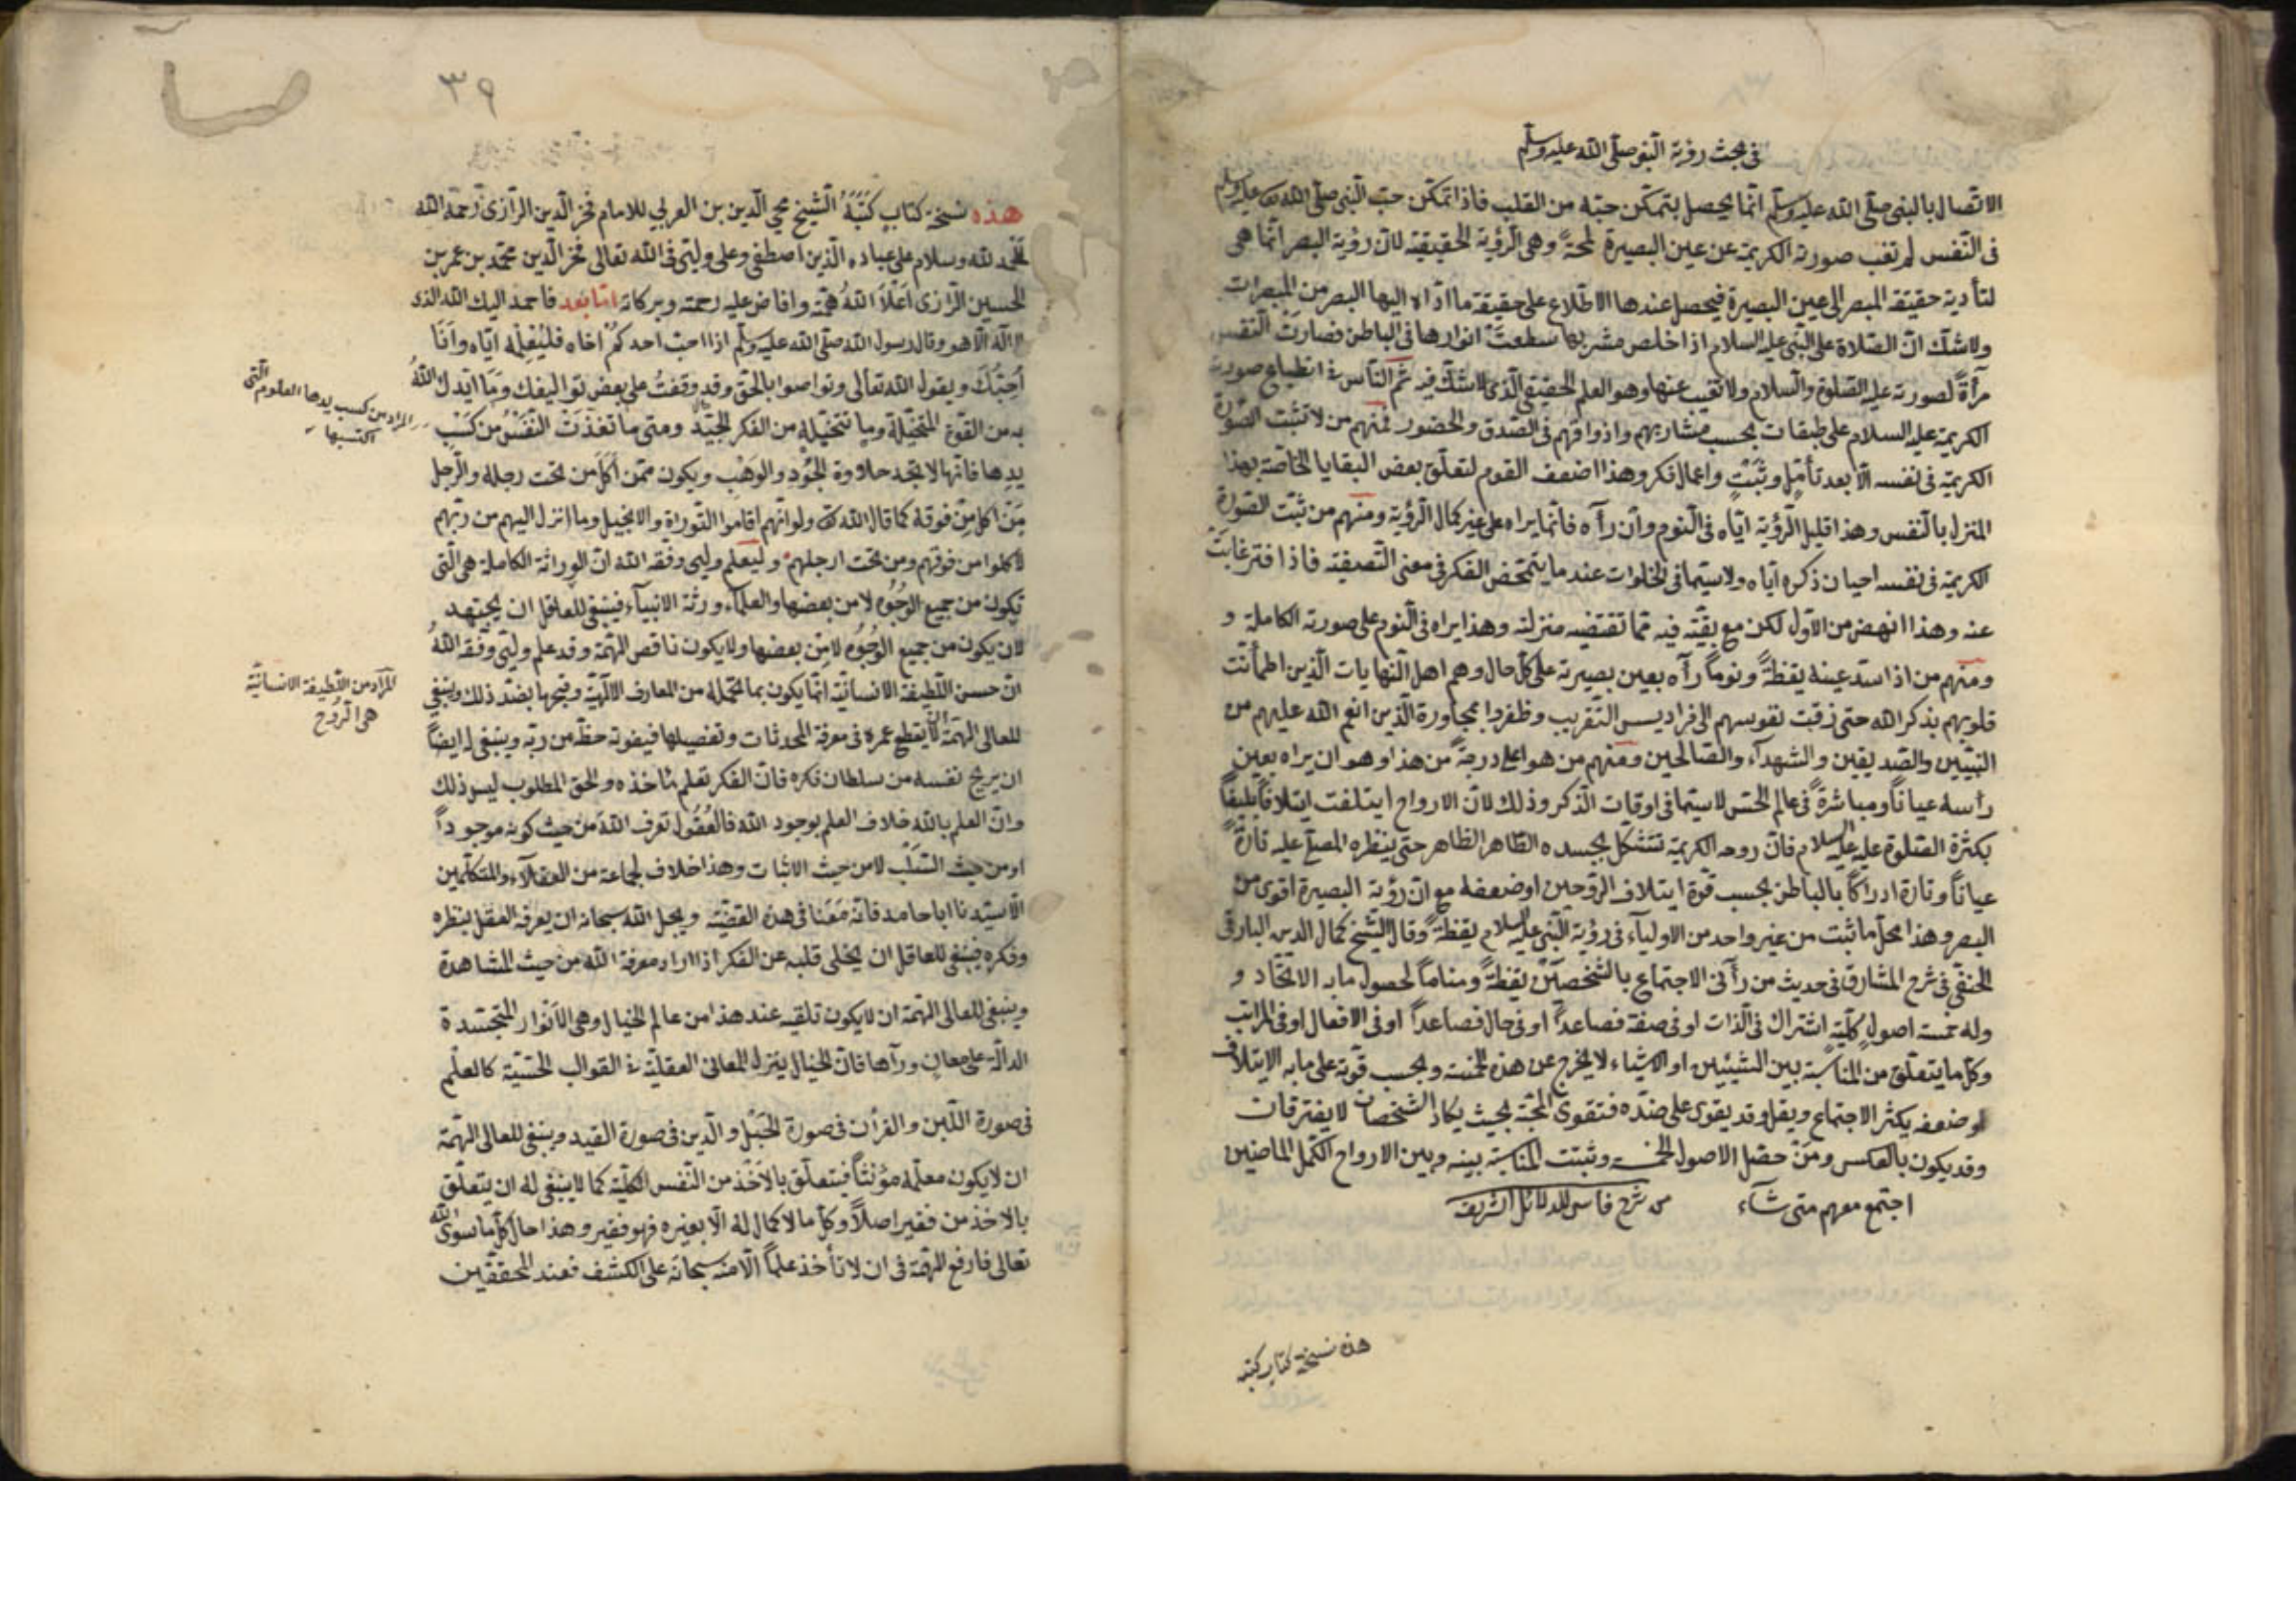 في بحث رؤية النبي صلى الله عليه وسلم
الاتصال بالنبي صلى الله عليه وسلم انما يحصل بتمكن حبه من القلب فاذا تمكن حب النبي صلى الله عليه وسلم
في النفس لم تغب صورته الكريمة عن عين البصيرة لمحة وهي الرؤية الحقيقية لان رؤية البصر انما هي
لتأدية حقيقة المبصر الى عين البصيرة فيحصل عندها الاطلاع على حقيقة ما اداه اليها البصر من المبصرات
ولا شك ان الصلاة على النبي عليه السلام اذا خلص مشربها سطعت انوارها في الباطن فصارت النفس
مرآة لصورته عليه الصلوة والسلام ولا تغيب عنها وهو العلم الحقيقي الذي لا شك فيه ثم الناس في انطباع صورته
الكريمة عليه السلام على طبقات بحسب مشاربهم واذواقهم في الصدق والحضور فمنهم من لا تثبت الصورة
الكريمة في نفسه الا بعد تأمل وتثبت واعمال فكر وهذا اضعف القوم لتعلق بعض البقايا الخاصة بهذا
المنزل بالنفس وهذا قليل الرؤية اياه في النوم وان رآه فانما يراه على غير كمال الرؤية ومنهم من تثبت الصورة
الكريمة في نفسه احيان ذكره اياه ولا سيما في الخلوات عند ما يتمحض الفكر في معنى التصفية فاذا فتر غابت
عنه وهذا انهض من الاول لكن مع بقية فيه مما تقتضيه منزلته وهذا يراه في النوم على صورته الكاملة و
ومنهم من اذا استد عينه يقظة ونوما رآه بعين بصيرته على كل حال وهم اهل النهايات الذين اطمأنت
قلوبهم بذكر الله حتى زقت نفوسهم الى فراديس التقريب وظفروا بمجاورة الذين انعم الله عليهم من
النبيين والصديقين والشهداء والصالحين ومنهم من هو اعلى درجة من هذا وهو ان يراه بعين
رأسه عيانا ومباشرة في عالم الحس لا سيما في اوقات الذكر وذلك لان الارواح ايتلفت ايتلافا بليغا
بكثرة الصلوة عليه عليه السلام فان روحه الكريمة تتشكل بجسده الطاهر الظاهر حتى ينظره المصلي عليه تارة
عيانا وتارة ادراكا بالباطن بحسب قوة ايتلاف الروحين او ضعفه مع ان رؤية البصيرة اقوى من
البصر وهذا محل ما ثبت من غير واحد من الاولياء في رؤية النبي عليه السلام يقظة وقال الشيخ كمال الدين البارقي
الحنفي في شرح المشارق في حديث من رآني الاجتماع بالشخصين يقظة ومناما لحصول ما به الاتحاد و
وله خمسة اصول كلية اشتراك في الذات او في صفة فصاعدا او في حال فصاعدا او في الافعال او في المراتب
وكل ما يتعلق من المناسبة بين الشيئين او الاشياء لا يخرج عن هذه الخمسة وبحسب قوته على ما به الايتلاف
او ضعفه يكثر الاجتماع ويقل وقد يقوى على ضده فتقوى المحبة بحيث يكاد الشخصان لا يفترقان
وقد يكون بالعكس ومن حصل الاصول الخمسة وثبتت المناسبة بينه وبين الارواح الكمل الماضين
اجتمع معهم متى شاء من شرح فاسي للدلائل الشريفة
هذه نسخة كتاب كتبه
٣٩
هذه نسخة كتاب كتبه الشيخ محي الدين بن العربي للامام فخر الدين الرازي رحمه الله
الحمد لله وسلام على عباده الذين اصطفى وعلى وليي في الله تعالى فخر الدين محمد بن عمر بن
الحسين الرازي اعلا الله همته وافاض عليه رحمته وبركاته اما بعد فاحمد اليك الله الذي
لا اله الا هو وقال رسول الله صلى الله عليه وسلم اذا احب احدكم اخاه فليعلمه اياه وانا
احبك ويقول الله تعالى وتواصوا بالحق وقد وقفت على بعض تواليفك وما ايدك الله
به من القوة المتخيلة وما تتخيله من الفكر الجيد ومتى ما تغذت النفس من كسب
يدها فانها لا تجد حلاوة الجود والوهب ويكون ممن اكل من تحت رجله والرجل
من اكل من فوقه كما قال الله تعالى ولو انهم اقاموا التوراة والانجيل وما انزل اليهم من ربهم
لاكلوا من فوقهم ومن تحت ارجلهم وليعلم وليي وفقه الله ان الوراثة الكاملة هي التي
تكون من جميع الوجوه لا من بعضها والعلماء ورثة الانبياء فينبغي للعاقل ان يجتهد
لان يكون من جميع الوجوه لا من بعضها ولا يكون ناقص الهمة وقد علم وليي وفقه الله
ان حسن اللطيفة الانسانية انما يكون بما تحمله من المعارف الالهية وقبحها بضد ذلك وينبغي
للعالي الهمة ان لا يقطع عمره في معرفة المحدثات وتفصيلها فيفوته حظه من ربه وينبغي له ايضا
ان يريح نفسه من سلطان فكره فان الفكر تعلم مأخذه والحق المطلوب ليس ذلك
وان العلم بالله خلاف العلم بوجود الله فالعقول تعرف الله من حيث كونه موجودا
او من حيث السلب لا من حيث الاثبات وهذا خلاف لجماعة من العقلاء والمتكلمين
الا سيدنا ابا حامد فانه معنا في هذه القضية ويجل الله سبحانه ان يعرفه العقل بنظره
وفكره فينبغي للعاقل ان يخلي قلبه عن الفكر اذا اراد معرفة الله من حيث المشاهدة
وينبغي للعالي الهمة ان لا يكون تلقيه عند هذا من عالم الخيال وهي الانوار المتجسدة
الدالة على معان ورآها فان الخيال ينزل المعاني العقلية في القوالب الحسية كالعلم
في صورة اللبن والقرآن في صورة الحبل والدين في صورة القيد وينبغي للعالي الهمة
ان لا يكون معلمه مؤنثا فيتعلق بالاخذ من النفس الكلية كما لا ينبغي له ان يتعلق
بالاخذ من فقير اصلا وكل ما لا كمال له الا بغيره فهو فقير وهذا حال كل ما سوى الله
تعالى فارفع الهمة في ان لا تأخذ علما الا منه سبحانه على الكشف فعند المحققين
المراد من كسب يدها العلوم التي
اكتسبها
المراد من اللطيفة الانسانية
هي الروح